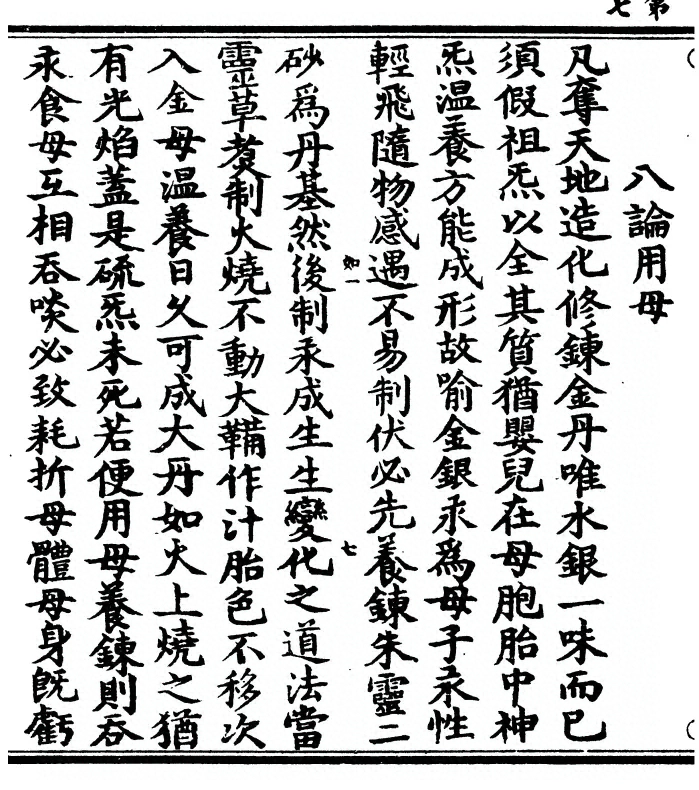 第七
八論用母
凡奪天地造化修鍊金丹唯水銀一味而已
須假祖炁以全其質猶嬰兒在母胞胎中神
炁温養方能成形故喻金銀汞爲母子汞性
輕飛隨物感遇不易制伏必先養鍊朱靈二
如一
七
砂爲丹基然後制汞成生生變化之道法當
靈草煑制火燒不動大鞴作汁胎色不移次
入金母温養日久可成大丹如火上燒之猶
有光焰蓋是硫炁未死若便用母養鍊則吞
汞食母互相吞啖必致耗折母體母身旣虧